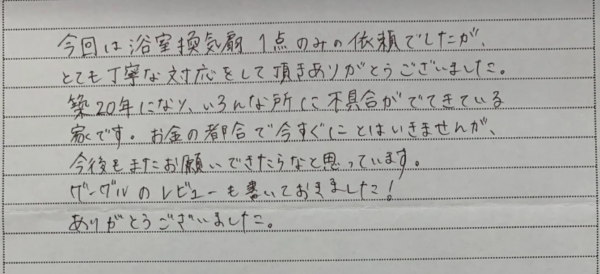 今回は浴室換気扇 1点のみの依頼でしたが、
とても丁寧な対応をして頂きありがとうございました。
築20年になり、いろんな所に不具合がでてきている
家です。お金の都合で今すぐにとはいきませんが、
今後もまたお願いできたらなと思っています。
グーグルのレビューも書いておきました!
ありがとうございました。